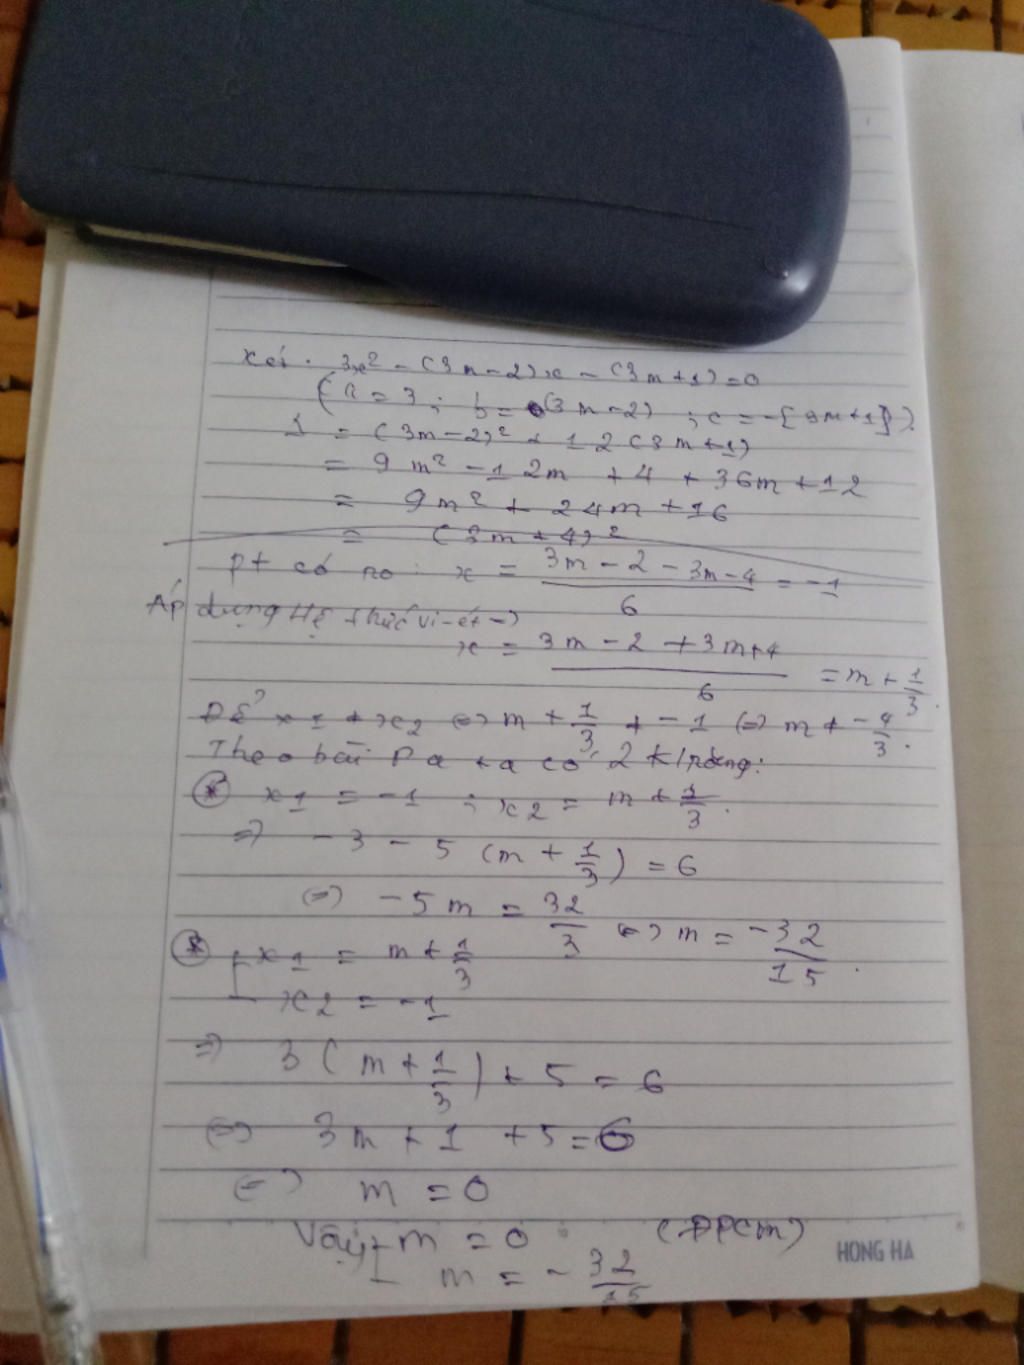 Xét . 3x² - (3m-2)x - (3m+1) = 0
(a = 3 ; b = (3m-2) ; c = -[3m+1]).
Δ = (3m-2)² + 12(3m+1)
= 9m² - 12m + 4 + 36m + 12
= 9m² + 24m + 16
= (3m+4)²
pt có no : x = (3m - 2 - 3m - 4)/6 = -1
Áp dụng Hệ thức Vi-ét →
x = (3m - 2 + 3m + 4)/6 = m + 1/3.
Để x1 ≠ x2 ⇔ m + 1/3 ≠ -1 ⇔ m ≠ -4/3.
Theo bài ra ta có 2 k/năng:
* x1 = -1 ; x2 = m + 1/3.
⇒ -3 - 5(m + 1/3) = 6
⇔ -5m = 32/3 ⇔ m = -32/15.
* [ x1 = m + 1/3
x2 = -1
⇒ 3(m + 1/3) + 5 = 6
⇔ 3m + 1 + 5 = 6
⇔ m = 0
Vậy [ m = 0 (ĐPCM)
m = -32/15
HONG HA